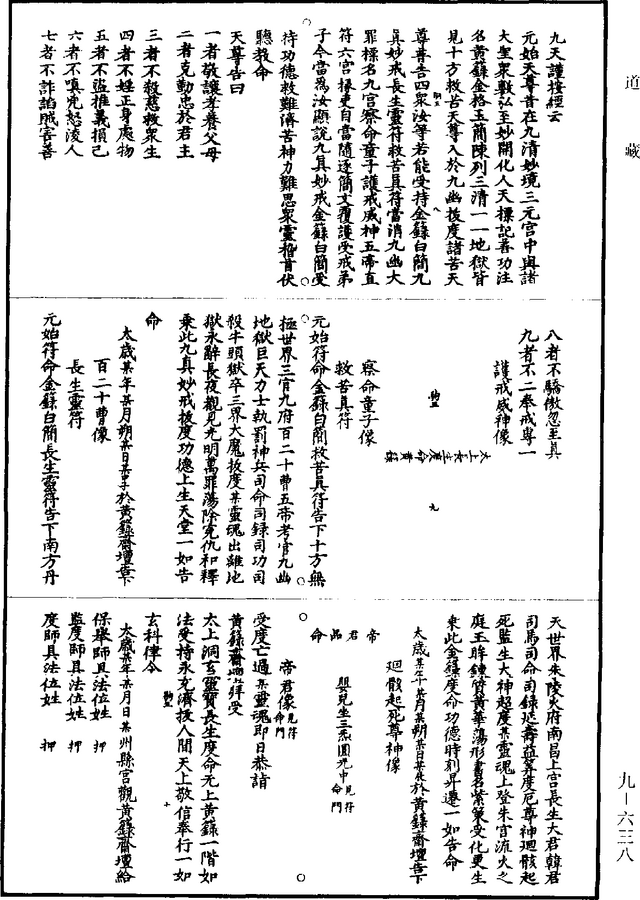 道藏
九天謹按經云
元始天尊昔在九清妙境三元宮中與諸
大聖衆敷弘至妙開化人天標記善功注
名黃籙金格玉簡陳列三清一一地獄皆
見十方救苦天尊入於九幽拔度諸苦天
尊普告四衆汝等若能受持金籙白簡九
真妙戒長生靈符救苦真符當消九幽大
罪標名九宮察命童子護戒威神五帝直
符六宮掾吏自當隨逐簡文覆護受戒弟
子今當爲汝顯說九真妙戒金籙白簡受
持功德救難濟苦神力難思衆靈稽首伏
聽教命
天尊告曰
一者敬讓孝養父母
二者克勤忠於君主
三者不殺慈救衆生
四者不婬正身處物
五者不盜推義損己
六者不嗔兇怒淩人
七者不詐諂賊害善
八者不驕傲忽至真
九者不二奉戒專一
護戒威神像
察命童子像
救苦真符
元始符命金籙白簡救苦真符告下十方無
極世界三官九府百二十曹五帝考官九幽
地獄巨天力士執罰神兵司命司錄司功司
殺牛頭獄卒三界大魔拔度某靈魂出離地
獄永辭長夜觀見光明萬罪蕩除冤仇和釋
乘此九真妙戒拔度功德上生天堂一如告
命
太歲某年某月朔某日某辰於黃籙齋壇告下
百二十曹像
長生靈符
元始符命金籙白簡長生靈符告下南方丹
天世界朱陵火府南昌上宮長生大君韓君
司馬司命司錄延壽益筭度厄尊神迴骸起
死監生大神超度某靈魂上登朱宮流火之
庭玉眸鍊質黃華蕩形書名紫策受化更生
乘此金籙度命功德時刻昇遷一如告命
太歲某年某月某朔某日某辰於黃籙齋壇告下
迴骸起死尊神像
帝君品命
嬰兒坐三炁圓光中見符命門
帝君像見符命門
受度亡過某靈魂即日恭詣
黃籙齋壇拜受
太上洞玄靈寶長生度命元上黃籙一階如
法受持永充濟拔人間天上敬信奉行一如
玄科律令
太歲某年某月日某州縣宮觀黃籙齋壇給
保舉師具法位姓 押
監度師具法位姓 押
度師具法位姓 押
九—六三八